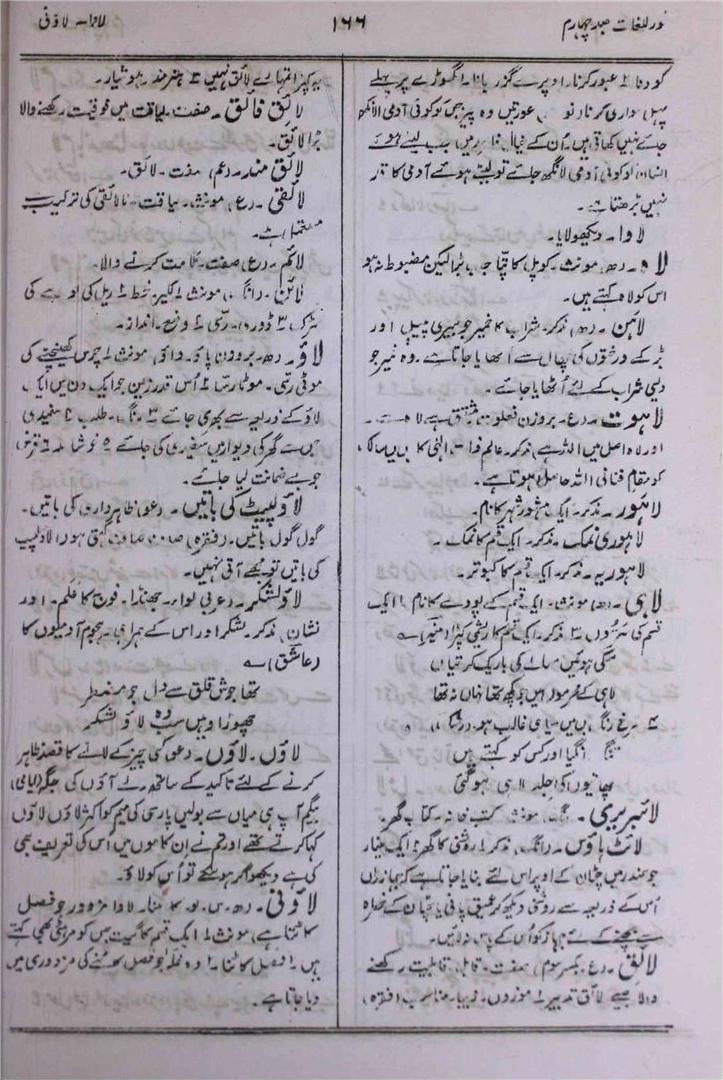 نور اللغات جلد چہارم
۱۶۶
لاوا۔ لاؤنی
کودنا ۲ عبور کرنا۔ اوپر سے گزر جانا ۳ گھوڑے پر پہلے
پہل سواری کرنا۔ عورتیں وہ چیز جس کو کوئی آدمی لانگھ
جائے نہیں کھاتی ہیں۔ اُن کے خیال میں جب لیٹے ہوئے
انسان کو کوئی آدمی لانگھ جائے تو لیٹے ہوئے آدمی کا قد
نہیں بڑھتا ہے۔
لاوا۔ دیکھو لایا۔
لاہ۔ (ھ) مونث۔ کوپل کا پتّا جب بڑا لیکن مضبوط نہ ہو
اس کو لاہ کہتے ہیں۔
لاہن۔ (ھ) مذکر۔ شراب کا خمیر جو بیری پیپل اور
بڑ کے درختوں کی چھال سے اُٹھایا جاتا ہے۔ وہ خمیر جو
دیسی شراب کے لئے اُٹھایا جائے۔
لاہوت۔ (ع۔ بروزن فعلوت مشتق ہے لاہ سے۔
اور لاہ اصل میں اللہ ہے) مذکر۔ عالمِ ذات الٰہی کا جس میں سالک
کو مقام فنا فی اللہ حاصل ہوتا ہے۔
لاہور۔ مذکر۔ ایک مشہور شہر کا نام۔
لاہوری نمک۔ مذکر۔ ایک قسم کا نمک۔
لاہوریہ۔ مذکر۔ ایک قسم کا کبوتر۔
لاہی۔ (ھ) مونث۔ ایک قسم کے پودے کا نام ۲ ایک
قسم کی سرسوں ۳ مذکر۔ ایک قسم کا ریشمی کپڑا (منیر) ؎
مسکی ہوئیں مسالے کی باریک کرتیاں
لاہی کے نرمو داہیں جو کچھ تھا نہاں نہ تھا
۴ سرخ رنگ جس میں سیاہی غالب ہو۔ (رشک) ؎
رنگیا اور کس کو کہتے ہیں
چھاتیوں کی جلد لاہی ہو گئی
لائبریری۔ (انگ) مونث۔ کتب خانہ۔ کتاب گھر۔
لائٹ ہاؤس۔ (انگ) مذکر۔ روشنی کا گھر۔ ایک مینار
جو سمندر میں چٹان کے اوپر اس لئے بنایا جاتا ہے کہ جہازراں
اُس کے ذریعہ سے روشنی دیکھ کر عمیق پانی یا چٹان کے خطرہ
سے بچنے کے لئے جہاز کو اُس کے پاس نہ لائیں۔
لائق۔ (ع۔ بکسر سوم) صفت۔ قابل۔ قابلیت رکھنے
والا جیسے لائق تدبیر ۲ موزوں۔ زیبا۔ مناسب (فقرہ)
یہ کپڑا تمہارے لائق نہیں ۳ ہنر مند۔ ہوشیار۔
لائق فائق۔ صفت۔ لیاقت میں فوقیت رکھنے والا
بڑا لائق۔
لائق مند۔ (عم) صفت۔ لائق۔
لائقی۔ (ع) مونث۔ لیاقت۔ نالائقی کی ترکیب سے
مستعمل ہے۔
لائم۔ (ع) صفت۔ ملامت کرنے والا۔
لائن۔ (انگ) مونث ۱ لکیر۔ خط ۲ ریل کی لوہے کی
سڑک ۳ ڈوری۔ رسّی ۴ وضع۔ انداز۔
لاؤ۔ (ھ۔ بروزن پاؤ۔ واؤ) مونث ۱ چرس کھینچنے کی
موٹی رسّی۔ موٹا رسّا ۲ اُس قدر زمین جو ایک دن میں ایک
لاؤ کے ذریعہ سے بھری جائے ۳ مانگ۔ طلب ۴ سفیدی
جس سے گھر کی دیواریں سفید کی جائے ۵ خوشامد ۶ قرض
جو بے ضمانت لیا جائے۔
لاؤ لپیٹ کی باتیں۔ (عو) ظاہرداری کی باتیں۔
گول گول باتیں۔ (فقرہ) میں صاف صاف کہتی ہوں لاؤ لپیٹ
کی باتیں تو مجھے آتی نہیں۔
لاؤ لشکر۔ (عربی لواء۔ جھنڈا۔ فوج کا علم۔ اور
نشان) مذکر۔ لشکر اور اس کے ہمراہی۔ ہجوم آدمیوں کا
(عاشق) ؎
تھا جوشِ قلق سے دل جو مضطر
چھوڑا وہیں سب وہ لاؤ لشکر
لاؤں۔ لاؤں۔ (عو) کسی چیز کے لانے کا قصد ظاہر
کرنے کے لئے تاکید کے ساتھ۔ لے آؤں کی جگہ۔ (ایامیٰ)
بیگم آپ ہی میاں سے بولیں پارسی کی میم کو اکثر لاؤں لاؤں
کہا کرتے تھے اور تم نے ان کاموں میں اس کی تعریف بھی
کی ہے دیکھو اگر ہو سکے تو اُس کو لاؤ۔
لاؤنی۔ (ھ۔ س۔ لو۔ کاٹنا۔ لاوا مزدور جو فصل
کاٹتا ہے) مونث ۱ ایک قسم کا گیت جس کو مرہٹی بھی کہتے
ہیں ۲ فصل کاٹنا۔ ۳ وہ غلہ جو فصل کاٹنے کی مزدوری میں
دیا جاتا ہے۔